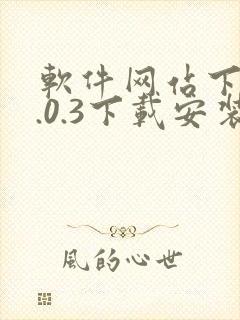 軟件网站下
.0.3下載安裝
風的心世